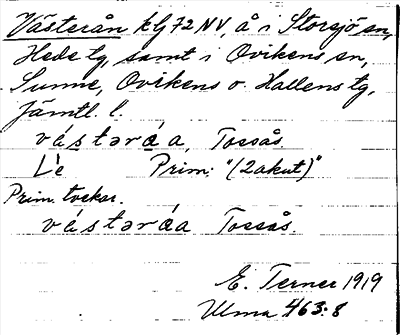 Västerån kbj 72 NV, å i Storsjö sn,
Hede tg, samt i Ovikens sn,
Sunne, Ovikens o. Hallens tg,
Jämtl. l.
västəråa, Tossås.
Lé Prim: "(2 akut)"
Prim. tvekar.
västəråa Tossås.
E. Terner 1919
Ulma 463:8